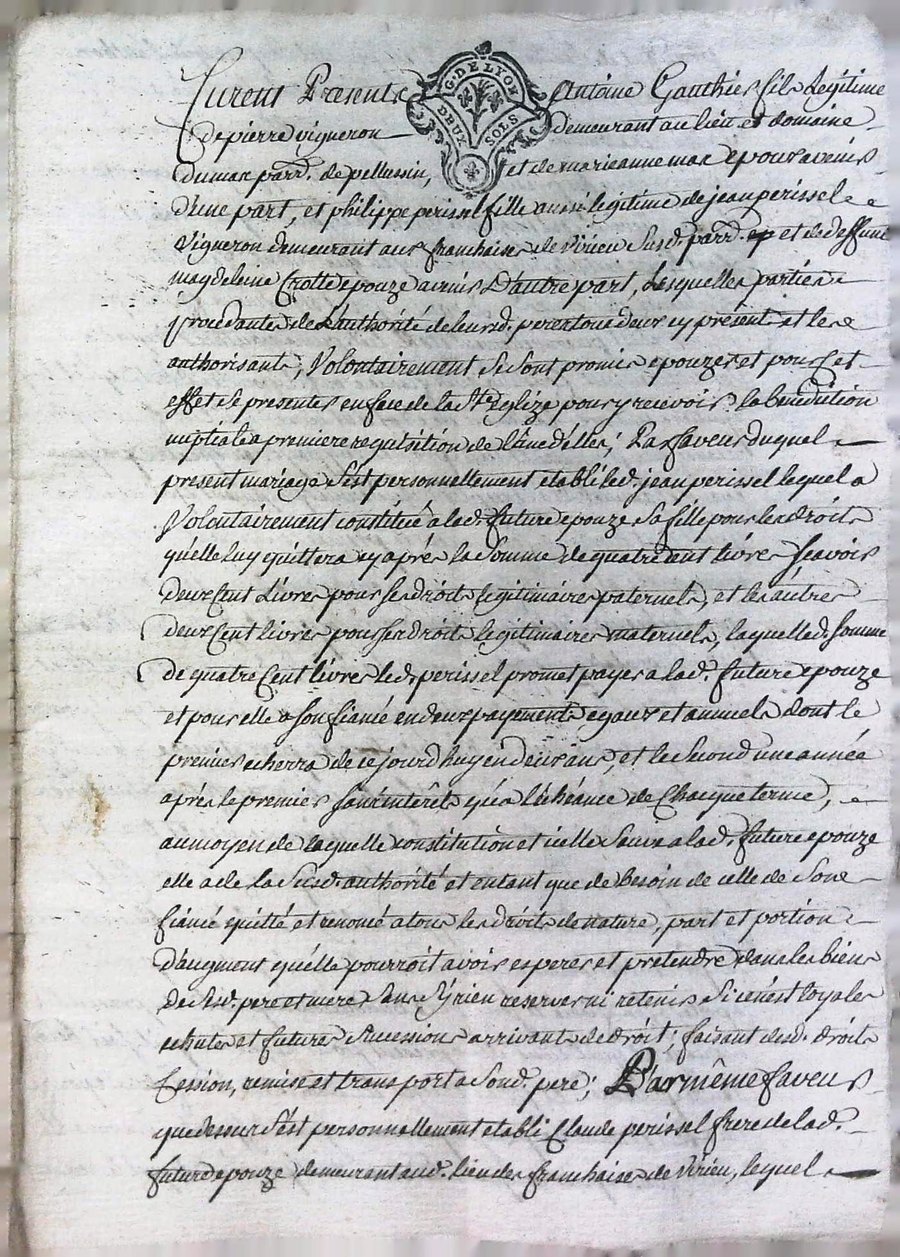 G. DE LYON
DEUX SOLS
furent Presents Antoine Gauthier fils Legitime
de pierre vigneron demeurant au lieu et domaine
du mas parr. de pellussin, et de marieanne mas epoux avenir
d'une part, et philippe perissel fille aussi legitime de jean perissel
vigneron demeurant aux franchises de virieu susd. parr. et de deffunte
magdeleine Crotte epouze avenir D'autre part, Lesquelles parties
procedantes de L'authorité de leursd. peres tous deux cy presents et les
authorisants, Volontairement se sont promis epouzer et pour Cet
effet se presenter en face de la Ste Eglize pour y recevoir la benediction
nuptiale a premiere requisition de l'une d'elles; Par faveur duquel
present mariage s'est personnellement etabli led. jean perissel lequel a
Volontairement constitué a lad. future epouze sa fille pour les droits
qu'elle luy quittera cy après la somme de quatre cent livres sçavoir
deux Cent Livres pour ses droits legitimaires paternels, et les autres
deux Cent livres pour ses droits legitimaires maternels, laquelle d. somme
de quatre Cent livres led. perissel promet payer a lad. future epouze
et pour elle a son fiancé en deux payements egaux et annuels dont le
premier echerra de ce jourd'huy en deux ans, et le second une année
après le premier sans interêts qu'a l'échéance de Chacque terme,
au moyen de laquelle constitution et icelle sauve a lad. future epouze
elle a de la susd. authorité et entant que de besoin de celle de son
fiancé quitté et renoncé a tous les droits de nature, part et portion
d'augment qu'elle pourroit avoir esperer et pretendre dans les biens
de sesd. pere et mere sans y rien reserver ni retenir si ce n'est loyales
echutes et futures succession arrivant de droit; faisant desd. droits
Cession, remise et transport a sond. pere; Par même faveur
que dessus s'est personnellement etabli Claude perissel frere de lad.
future epouze demeurant aud. lieu des franchises de virieu, lequel